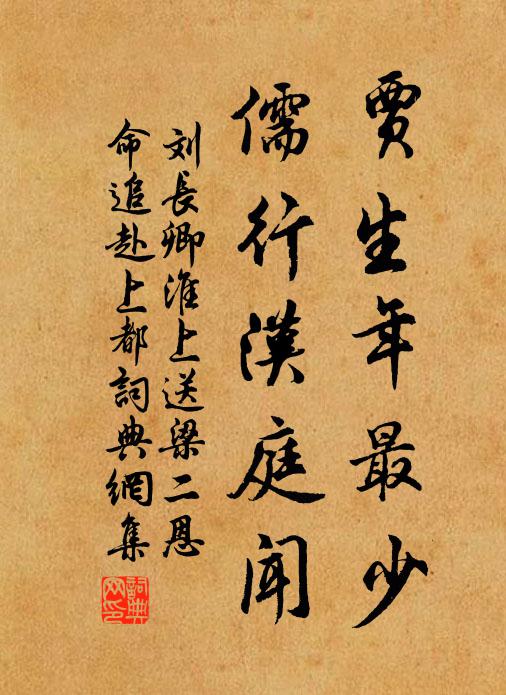 賈生年最少
儒行漢庭聞
刘長卿淮上送梁二恩
命追赴上都詞典網集
詞典
网印